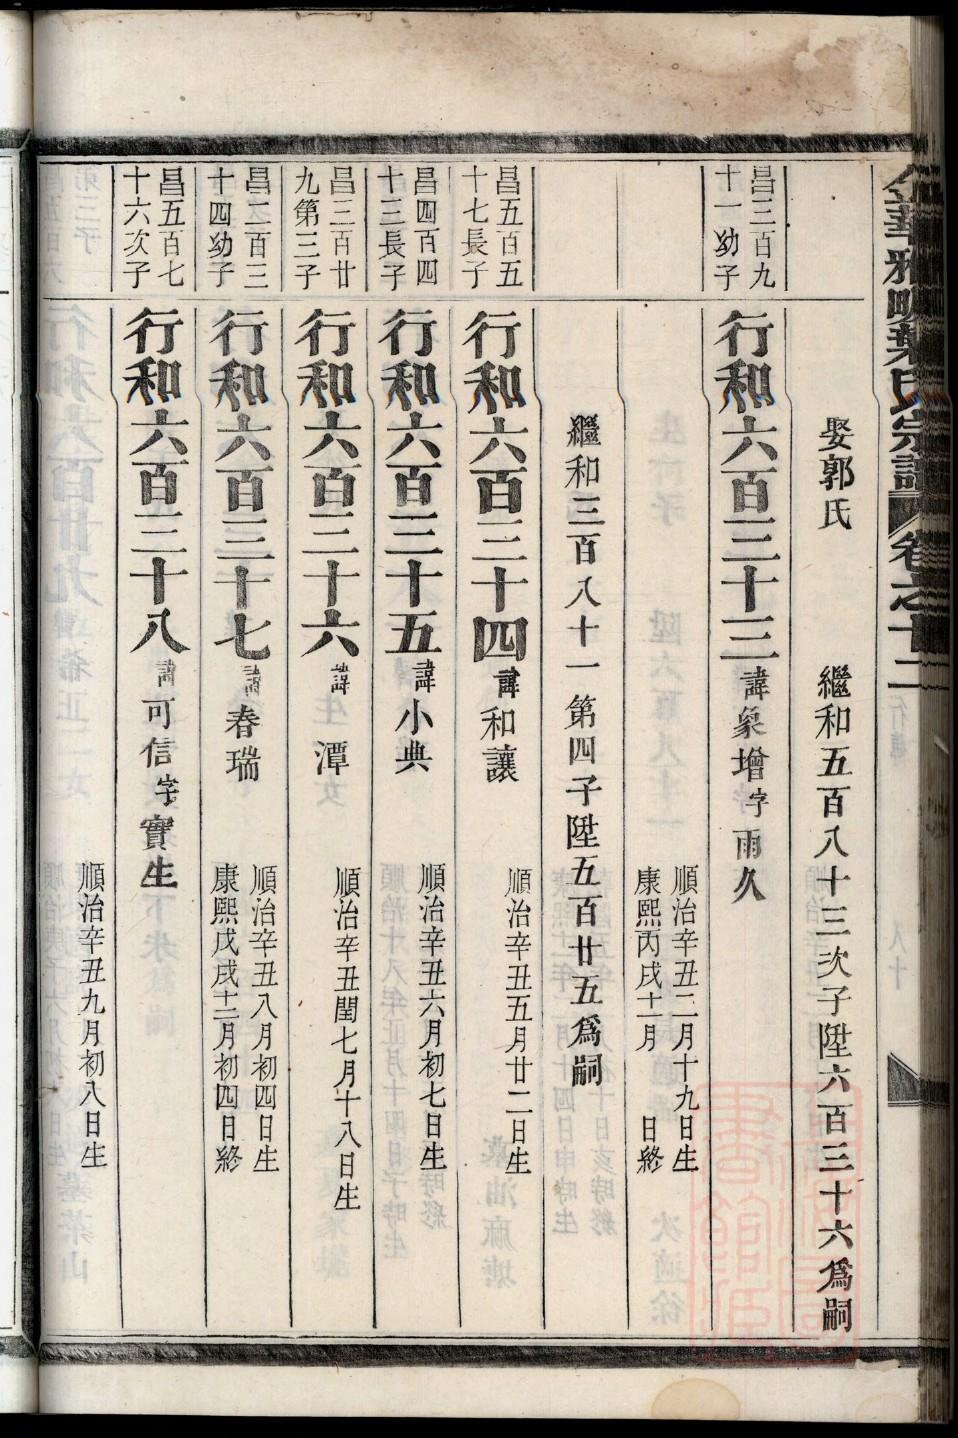 金華雅畈葉氏宗譜 卷之十二
娶郭氏 繼和五百八十三次子陞六百三十六為嗣
昌三百九十一幼子
行和六百三十三 諱象增字雨久 順治辛丑二月十九日生
康熙丙戌十一月 日終
繼和三百八十一第四子陞五百廿五為嗣
昌五百五十七長子
行和六百三十四 諱和讓 順治辛丑五月廿二日生
昌四百四十三長子
行和六百三十五 諱小典 順治辛丑六月初七日生
昌三百廿九第三子
行和六百三十六 諱潭 順治辛丑閏七月十八日生
昌二百三十四幼子
行和六百三十七 諱春瑞 順治辛丑八月初四日生
康熙戊戌十二月初四日終
昌五百七十六次子
行和六百三十八 諱可信字實生 順治辛丑九月初八日生